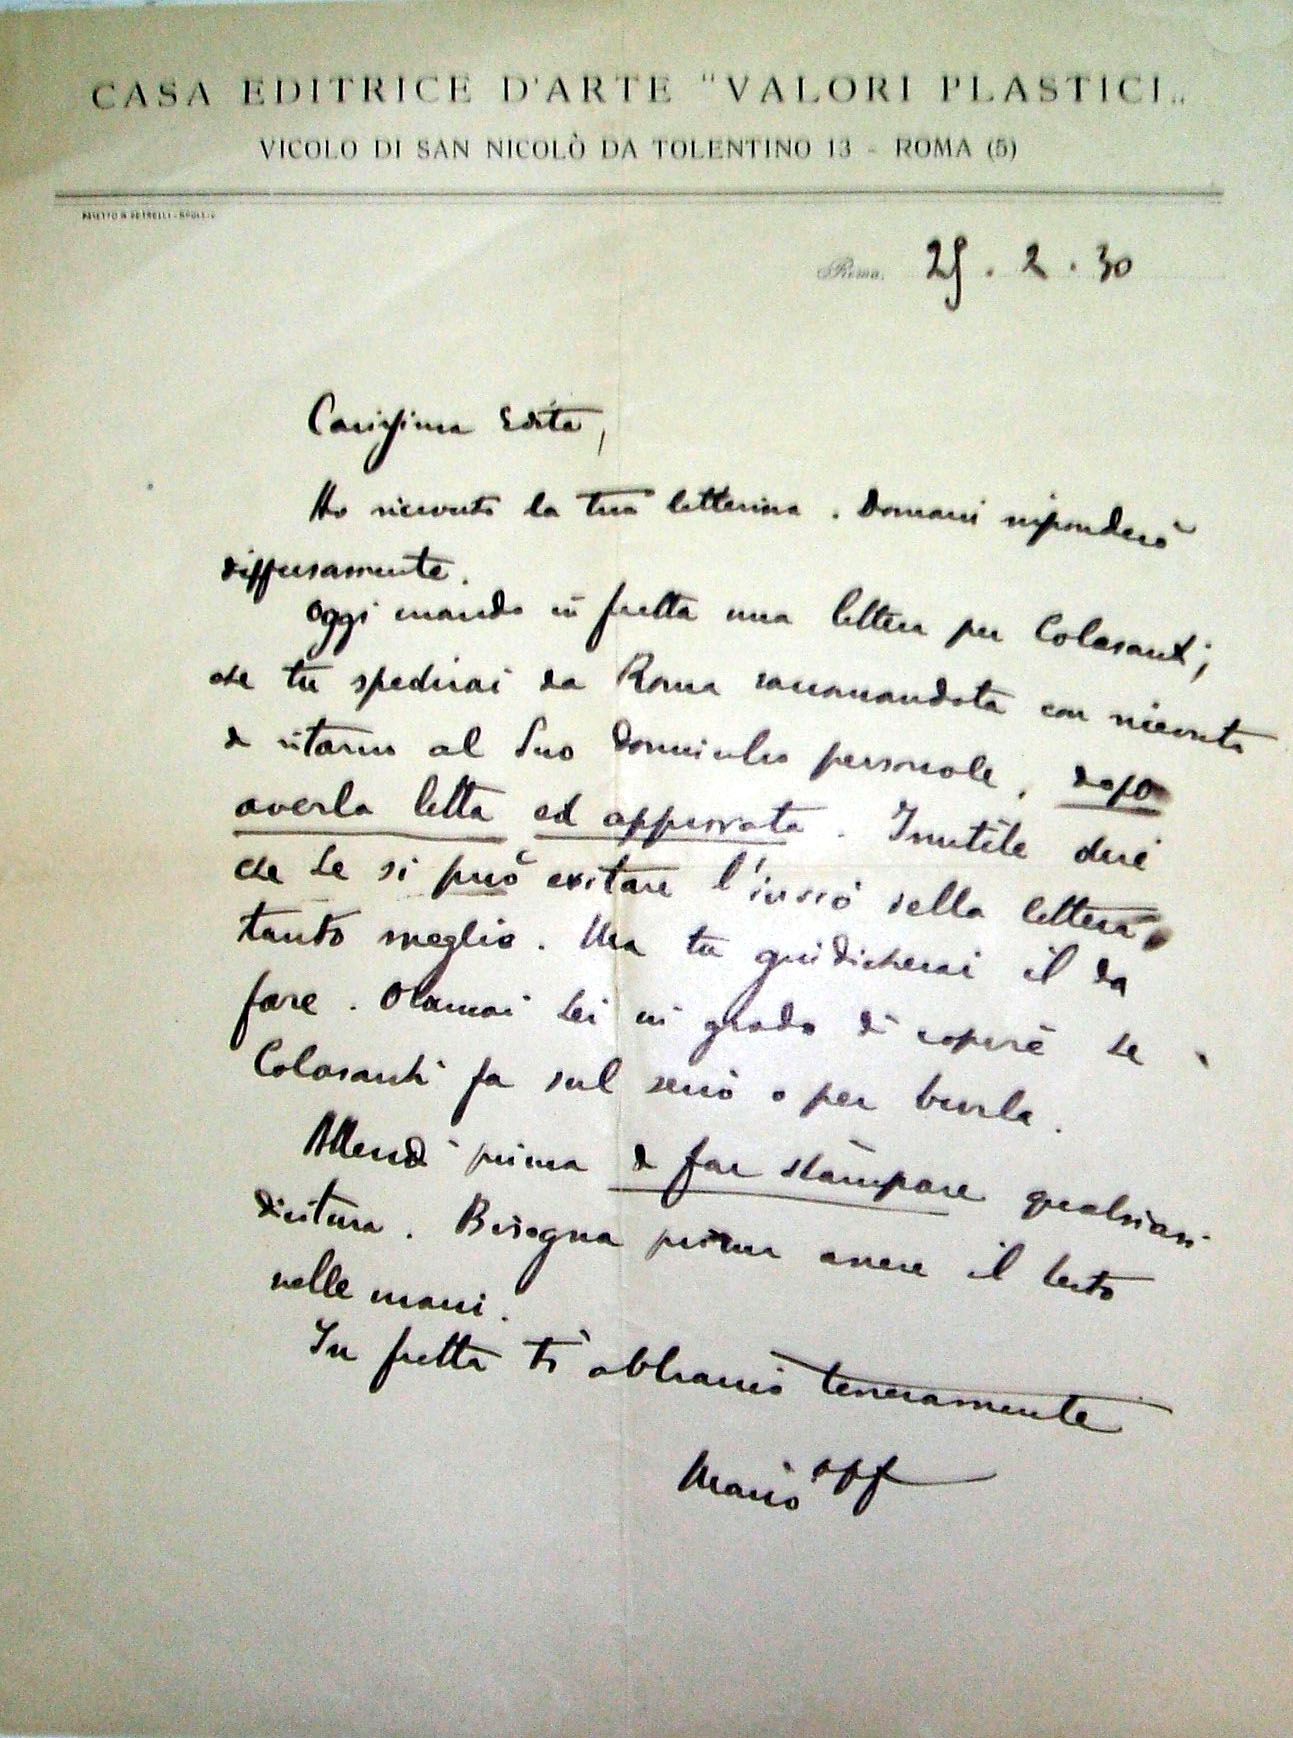 CASA EDITRICE D'ARTE "VALORI PLASTICI„
VICOLO DI SAN NICOLÒ DA TOLENTINO 13 - ROMA (5)
Roma, 25.2.30
Carissima Edita,
Ho ricevuto la tua letterina. Domani risponderò
diffusamente.
Oggi mando in fretta una lettera per Colasanti,
che tu spedirai da Roma raccomandata con ricevuta
di ritorno al Suo domicilio personale, dopo
averla letta ed approvata. Inutile dire
che se si può evitare l'invio della lettera,
tanto meglio. Ma tu giudicherai il da
fare. Oramai sei in grado di capire se
Colasanti fa sul serio o per burla.
Attendi prima di far stampare qualsiasi
dicitura. Bisogna prima avere il testo
nelle mani.
In fretta ti abbraccio teneramente
Mario